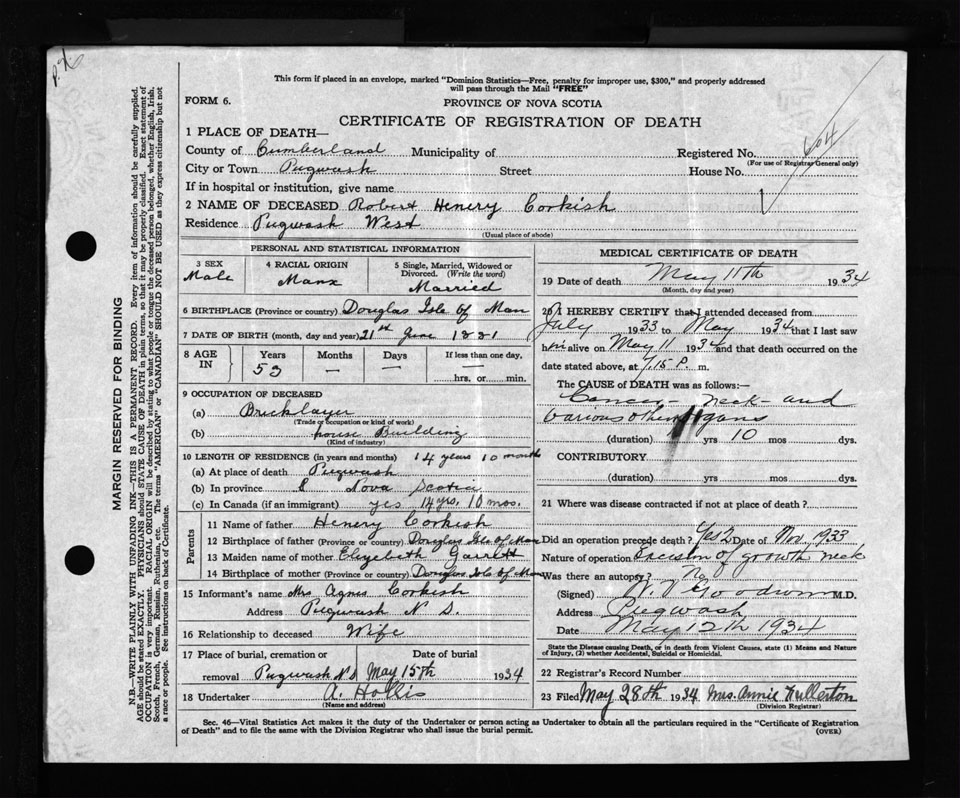 P.X.
This form if placed in an envelope, marked "Dominion Statistics—Free, penalty for improper use, $300," and properly addressed
will pass through the Mail "FREE"
FORM 6.
PROVINCE OF NOVA SCOTIA
CERTIFICATE OF REGISTRATION OF DEATH
1 PLACE OF DEATH—
County of Cumberland Municipality of Registered No. 604
(For use of Registrar General only)
City or Town Pugwash Street House No.
If in hospital or institution, give name
2 NAME OF DECEASED Robert Henery Corkish
Residence Pugwash West
(Usual place of abode)
PERSONAL AND STATISTICAL INFORMATION
3 SEX Male
4 RACIAL ORIGIN Manx
5 Single, Married, Widowed or Divorced. (Write the word) Married
6 BIRTHPLACE (Province or country) Douglas Isle of Man
7 DATE OF BIRTH (month, day and year) 21st June 1881
8 AGE IN Years 53 Months — Days — If less than one day, — hrs. or min.
9 OCCUPATION OF DECEASED
(a) Bricklayer
(Trade or occupation or kind of work)
(b) house Building
(Kind of industry)
10 LENGTH OF RESIDENCE (in years and months) 14 years 10 months
(a) At place of death Pugwash
(b) In province Nova Scotia
(c) In Canada (if an immigrant) yes 14 yrs. 10 mos.
Parents
11 Name of father Henery Corkish
12 Birthplace of father (Province or country) Douglas Isle of Man
13 Maiden name of mother Elizebeth Garrett
14 Birthplace of mother (Province or country) Douglas Isle of Man
15 Informant's name Mrs Agnes Corkish
Address Pugwash N S.
16 Relationship to deceased Wife
17 Place of burial, cremation or removal Pugwash N.S Date of burial May 15th 1934
18 Undertaker A. Hollis
(Name and address)
MEDICAL CERTIFICATE OF DEATH
19 Date of death May 11th 1934
(Month, day and year)
20 I HEREBY CERTIFY that I attended deceased from
July 1933 to May 1934 that I last saw
him alive on May 11 1934 and that death occurred on the
date stated above, at 7.15 P. m.
The CAUSE OF DEATH was as follows:
Cancer — neck — and
various other organs
(duration) yrs 10 mos dys.
CONTRIBUTORY
(duration) yrs. mos. dys.
21 Where was disease contracted if not at place of death?
Did an operation precede death? Yes 2 Date of Nov 1933
Nature of operation Excision of growth neck
Was there an autopsy? No
(Signed) Goodwin M.D.
Address Pugwash
Date May 12th 1934
State the Disease causing Death, or in death from Violent Causes, state (1) Means and Nature
of Injury, (2) whether Accidental, Suicidal or Homicidal.
22 Registrar's Record Number
23 Filed May 28th 1934 Mrs. Annie Fullerton
(Division Registrar)
Sec. 46—Vital Statistics Act makes it the duty of the Undertaker or person acting as Undertaker to obtain all the particulars required in the "Certificate of Registration
of Death" and to file the same with the Division Registrar who shall issue the burial permit.
(OVER)
MARGIN RESERVED FOR BINDING
N.B.—WRITE PLAINLY WITH UNFADING INK—THIS IS A PERMANENT RECORD. Every item of information should be carefully supplied.
AGE should be stated EXACTLY. PHYSICIANS should STATE CAUSE OF DEATH in plain terms, so that it may be properly classified. Exact statement of
OCCUPATION is very important. RACIAL ORIGIN will be described by stating to what people or tongue the deceased person belonged, whether English, Irish,
Scotch, French, German, Russian, Ruthenian, etc. The terms "AMERICAN" or "CANADIAN" SHOULD NOT BE USED as they express citizenship but not
a race or people. See instructions on back of Certificate.